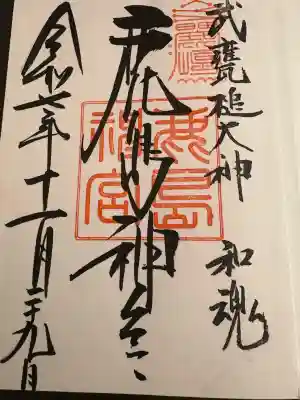 武甕槌大神 和魂
鹿島神宮
鹿島
神宮
令和六年十一月二十九日